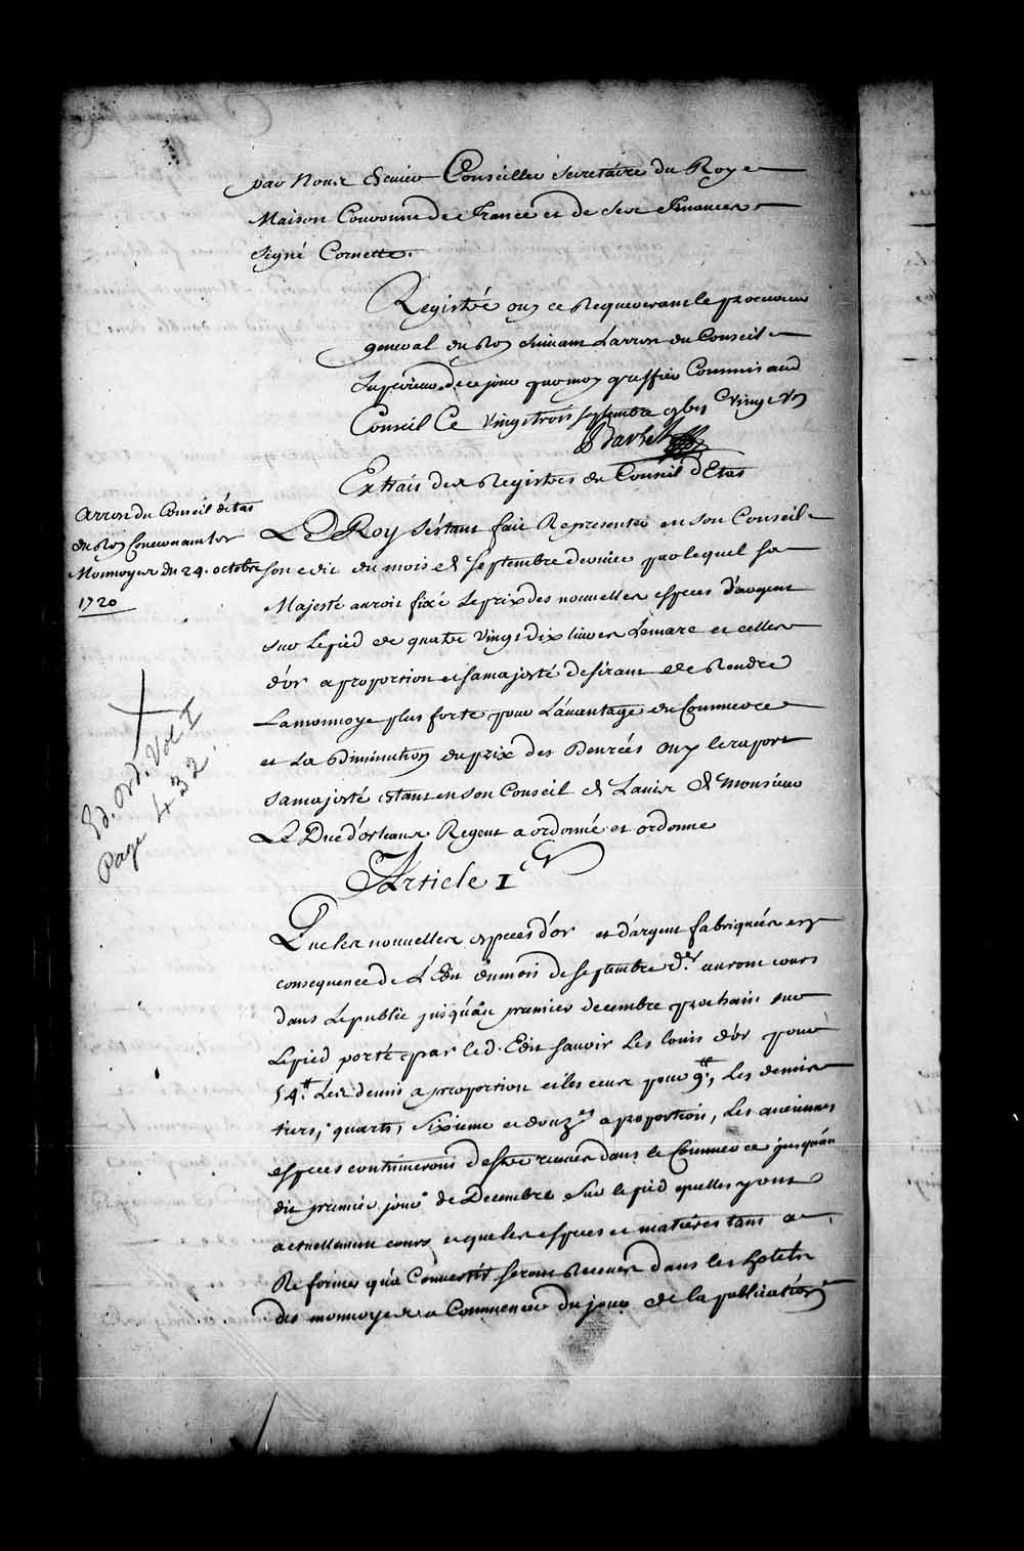 par Nous Ecuier Conseiller Secretaire du Roy
Maison Couronne de france et de ses finances
signé Cornette.
Registré ouy ce Requerant le procureur
general du Roy suivant L'arrest du Conseil
superieur de ce jour par moy greffier Commis aud
Conseil Ce vingt trois septembre vingt Un
Barbel
Extrait des Registres du Conseil d'Etat
Arrest du Conseil d'état
du Roy Concernant les
Monnoyes du 24. octobre
1720
LE Roy s'éstant fait Representer en son Conseil
son edit du mois de septembre dernier par lequel sa
Majesté auroit fixé le prix des nouvelles especes d'argent
sur le pied de quatre vingt dix livres Le marc et celles
d'or a proportion et sa majesté desirant de Rendre
La monnoye plus forte pour L'avantage du Commerce
et La Diminution du prix des Denrées ouy le raport
sa majesté estant en son Conseil de L'avis de Monsieur
LE Duc d'orleans Regent a ordonné et ordonne
Ed. Ord. Vol. I
Page 432.
Article Ier
Que les nouvelles especes d'or et d'argent fabriquées en
consequence de L'Edit du mois de septembre der auront cours
dans le public jusqu'au premier decembre prochain sur
Le pied porté par led. Edit savoir Les louis d'or pour
54.tt Les demis a proportion et les ecus pour 9.tt, Les demis
tiers, quarts, sixieme et douzes a proportion, Les anciennes
especes continueront d'estre receues dans le Commerce jusqu'au
dit premier jour de Decembre sur le pied quelles y ont
actuellement cours et que les especes et matieres tant a
Reformer qu'a Convertir seront Receues dans les hotels
des monnoyes a Commencer du jour de la publication